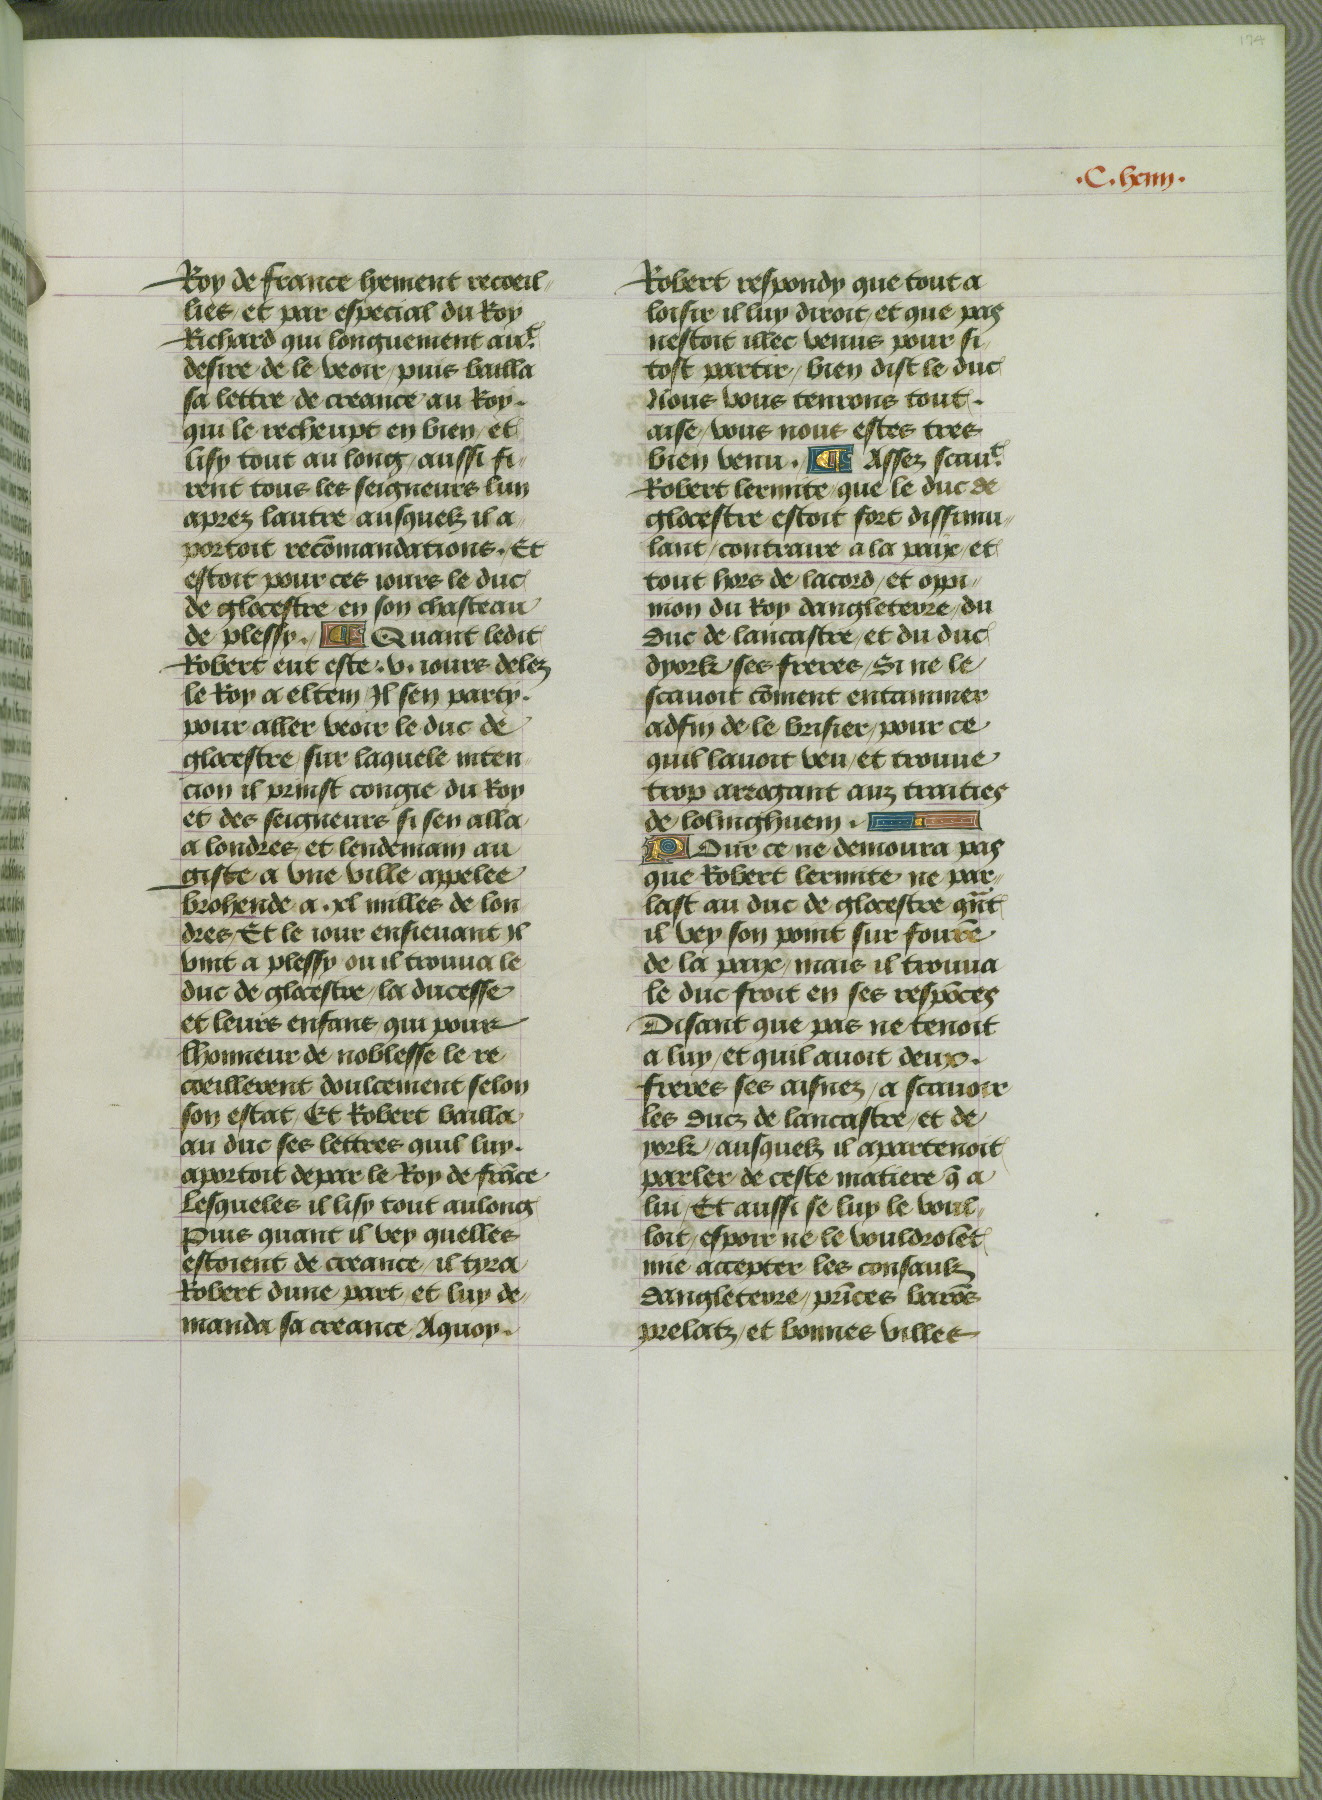 174
.C. henry.
Roy de france hement recoeil
lies et par especial du Roy
Richard qui longuement auᵗ
desire de le veoir / puis bailla
sa lettre de creance au Roy .
qui le recheupt en bien / et
lisy tout au long / aussi fi
rent tous les seigneurs lun
aprez lautre ausquelz il a
portoit recōmandations . Et
estoit pour ces iours le duc
de glocestre en son chasteau
de plessy . ¶ Quant ledit
Robert eut este .v. iours delez
le Roy a eltem / Il sen party .
pour aller veoir le duc de
glocestre / sur laquele inten
cion il prinst congie du Roy
et des seigneurs si sen alla
a londres et lendemain au
giste a vne ville appelee
brohende a .xl milles de lon
dres / Et le iour ensieuant Il
vint a plessy ou il trouua le
duc de glocestre / la ducesse
et leurs enfans qui pour
lhonneur de noblesse le re
coeillerent doulcement selon
son estat / Et Robert bailla
au duc ses lettres quil luy .
aportoit depar le Roy de frāce
Lesqueles il lisy tout aulong
Puis quant il vey quelles
estoient de creance / il tyra
Robert dune part / et luy de
manda sa creance / Aquoy .
Robert respondy que tout a
loisir il luy diroit / et que pas
nestoit illec venus pour si
tost partir / bien dist le duc
Nous vous tenrons tout .
aise / vous nous estes tres
bien venu . ¶ Assez scauᵗ
Robert lermite / que le duc de
glocestre estoit fort dissimu
lant / contraire a la paix / et
tout hors de lacord / et oppi
nion du Roy dangleterre / du
duc de lancastre / et du duc
dyork / ses freres / Si ne le
scauoit cōment entammer
adfin de le brisier / pour ce
quil lauoit veu / et trouue
trop arrogant aux traities
de lolinghuem .
Pour ce ne demoura pas
que Robert lermite ne par
last au duc de glocestre qn̄t
il vey son point sur fourme
de la paix / mais il trouua
le duc froit en ses respōces
Disant que pas ne tenoit
a luy / et quil auoit deux .
freres ses aisnez / a scauoir
les ducz de lancastre / et de
york / ausquelz il apartenoit
parler de ceste matiere q̄ a
lui / Et aussi se luy le voul
loit / espoir ne le vouldroiēt
mie accepter les consaulz
dangleterre / prīces barōs
prelatz / et bonnes villes